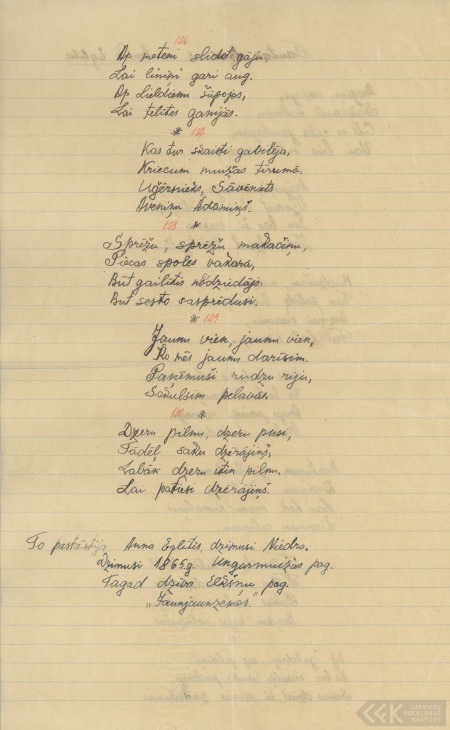 126
Ap meteni slidot gāju,
Lai liniņi gari aug.
Ap Lieldienu šūpojos,
Lai telītes ganījās.
* 127
Kas tur skaisti gabilēja,
Kriecum muižas tīrumā,
Uģērnieks, Sāvēniets
Aveniņu Ādamiņš.
128 *
Sprēžu, sprēžu mākačiņu,
Piecas spoles vakarā,
Būt gailītis nodziedājs
Būt sesto sasprēdusi.
* 129
Jaunu vien, jaunu vien,
Ko mēs jaunu darīsim.
Paņēmuši rudzu riju,
Sakulsim pelavās.
*
Dzeru pilnu, dzeru pusi,
Tādēļ sauku dzērājiņš,
Labāk dzeru itin pilnu,
Lai patiesi dzērājiņš.
To pastāstīja Anna Eglītes, dzimusi Niedra.
Dzimusi 1865g Ungurmuižas pag.
Tagad dzīvo Elkšņu pag.
„Jaunjaunzemos"
LATVIEŠU
FOLKLORAS
KRĀTUVE